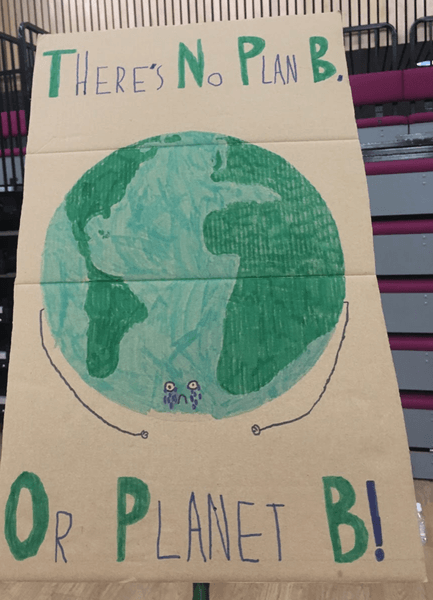 THERE'S NO PLAN B.
OR PLANET B!